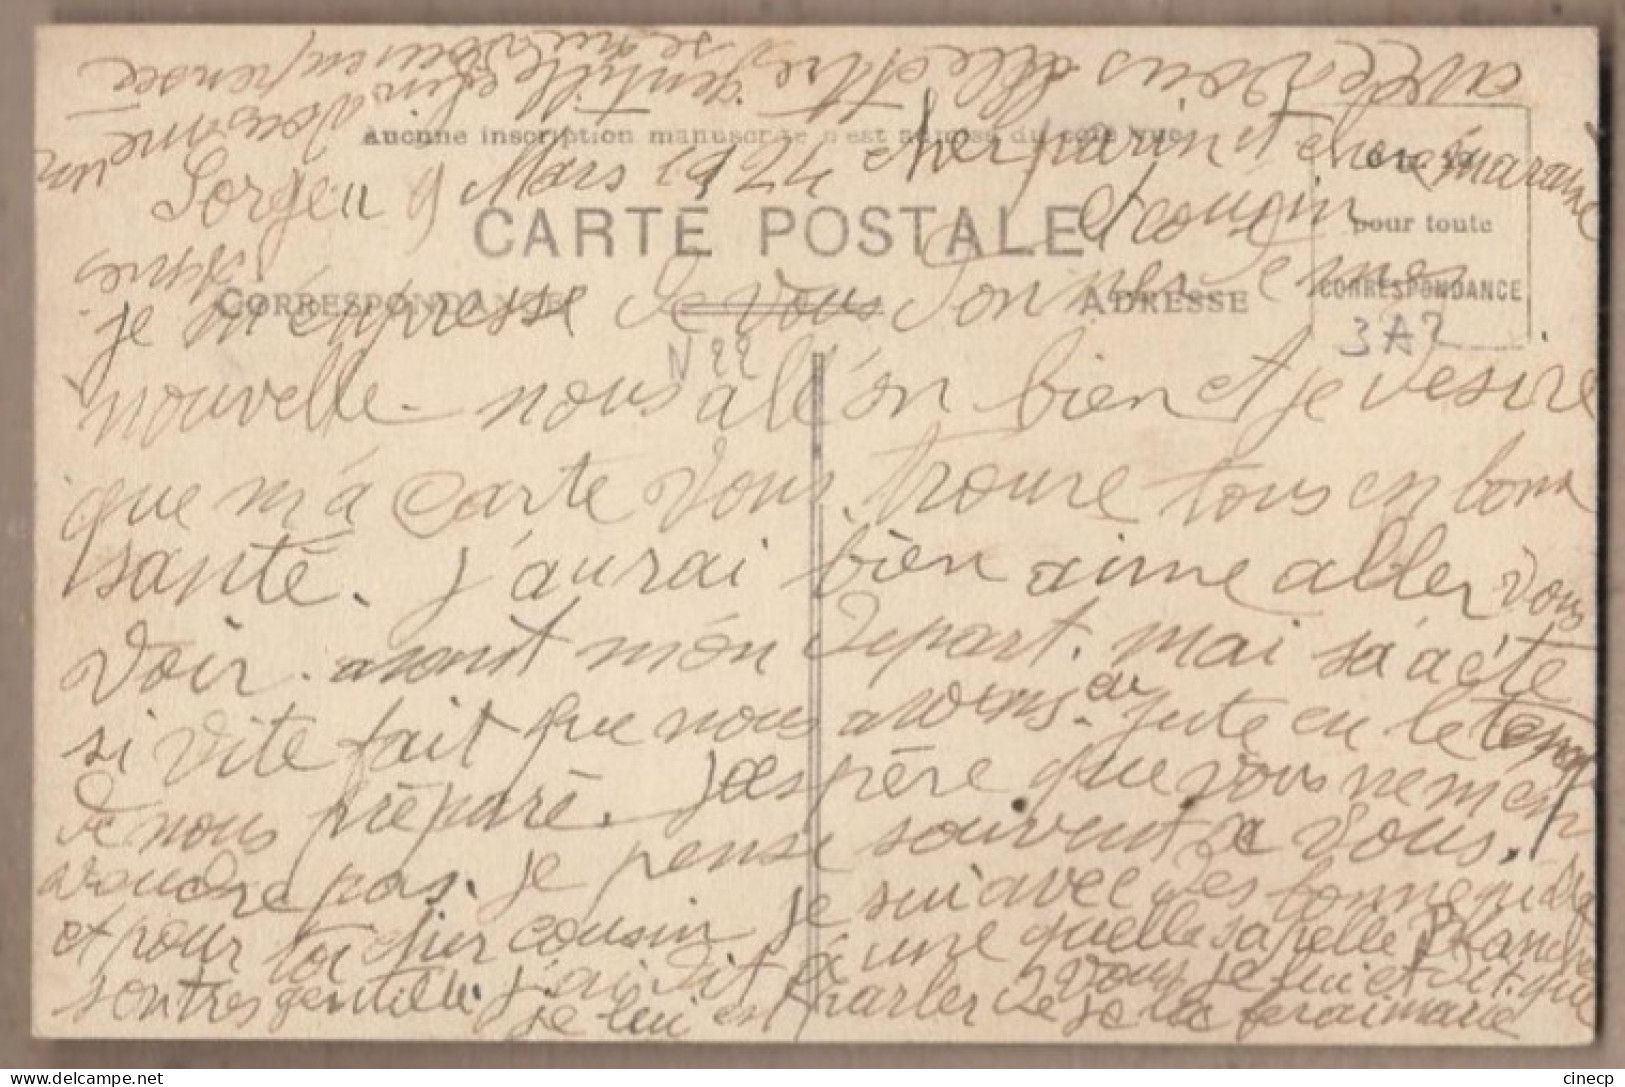 Aucune inscription manuscrite n'est admise du côté vue
CARTE POSTALE
CORRESPONDANCE
ADRESSE
pour toute
CORRESPONDANCE
3A2
N 22
9 Mars 1924 cher parin et chere maraine
et cousin
je m'empresse de vous donner de mes
nouvelle. nous allé on bien et je desire
que m'a carte vous trouve tous en bonn
santé. j'aurai bien aime aller vous
voir. avant món depart. mai sa a éte
si vite fait que nous avons eu juste eu le temp
de nous préparé. J'espére que vous ne m'en
voudre pas. je pense souvent a vous.
et pour toi cher cousin je sui avec des bonne qui
sontres gentille. j'ai dit á une quelle sapelle Blanche
je lui est parler de vous je lui et dit que
je la ferai marie
avec vous elle et tres gentille
vous en pensée